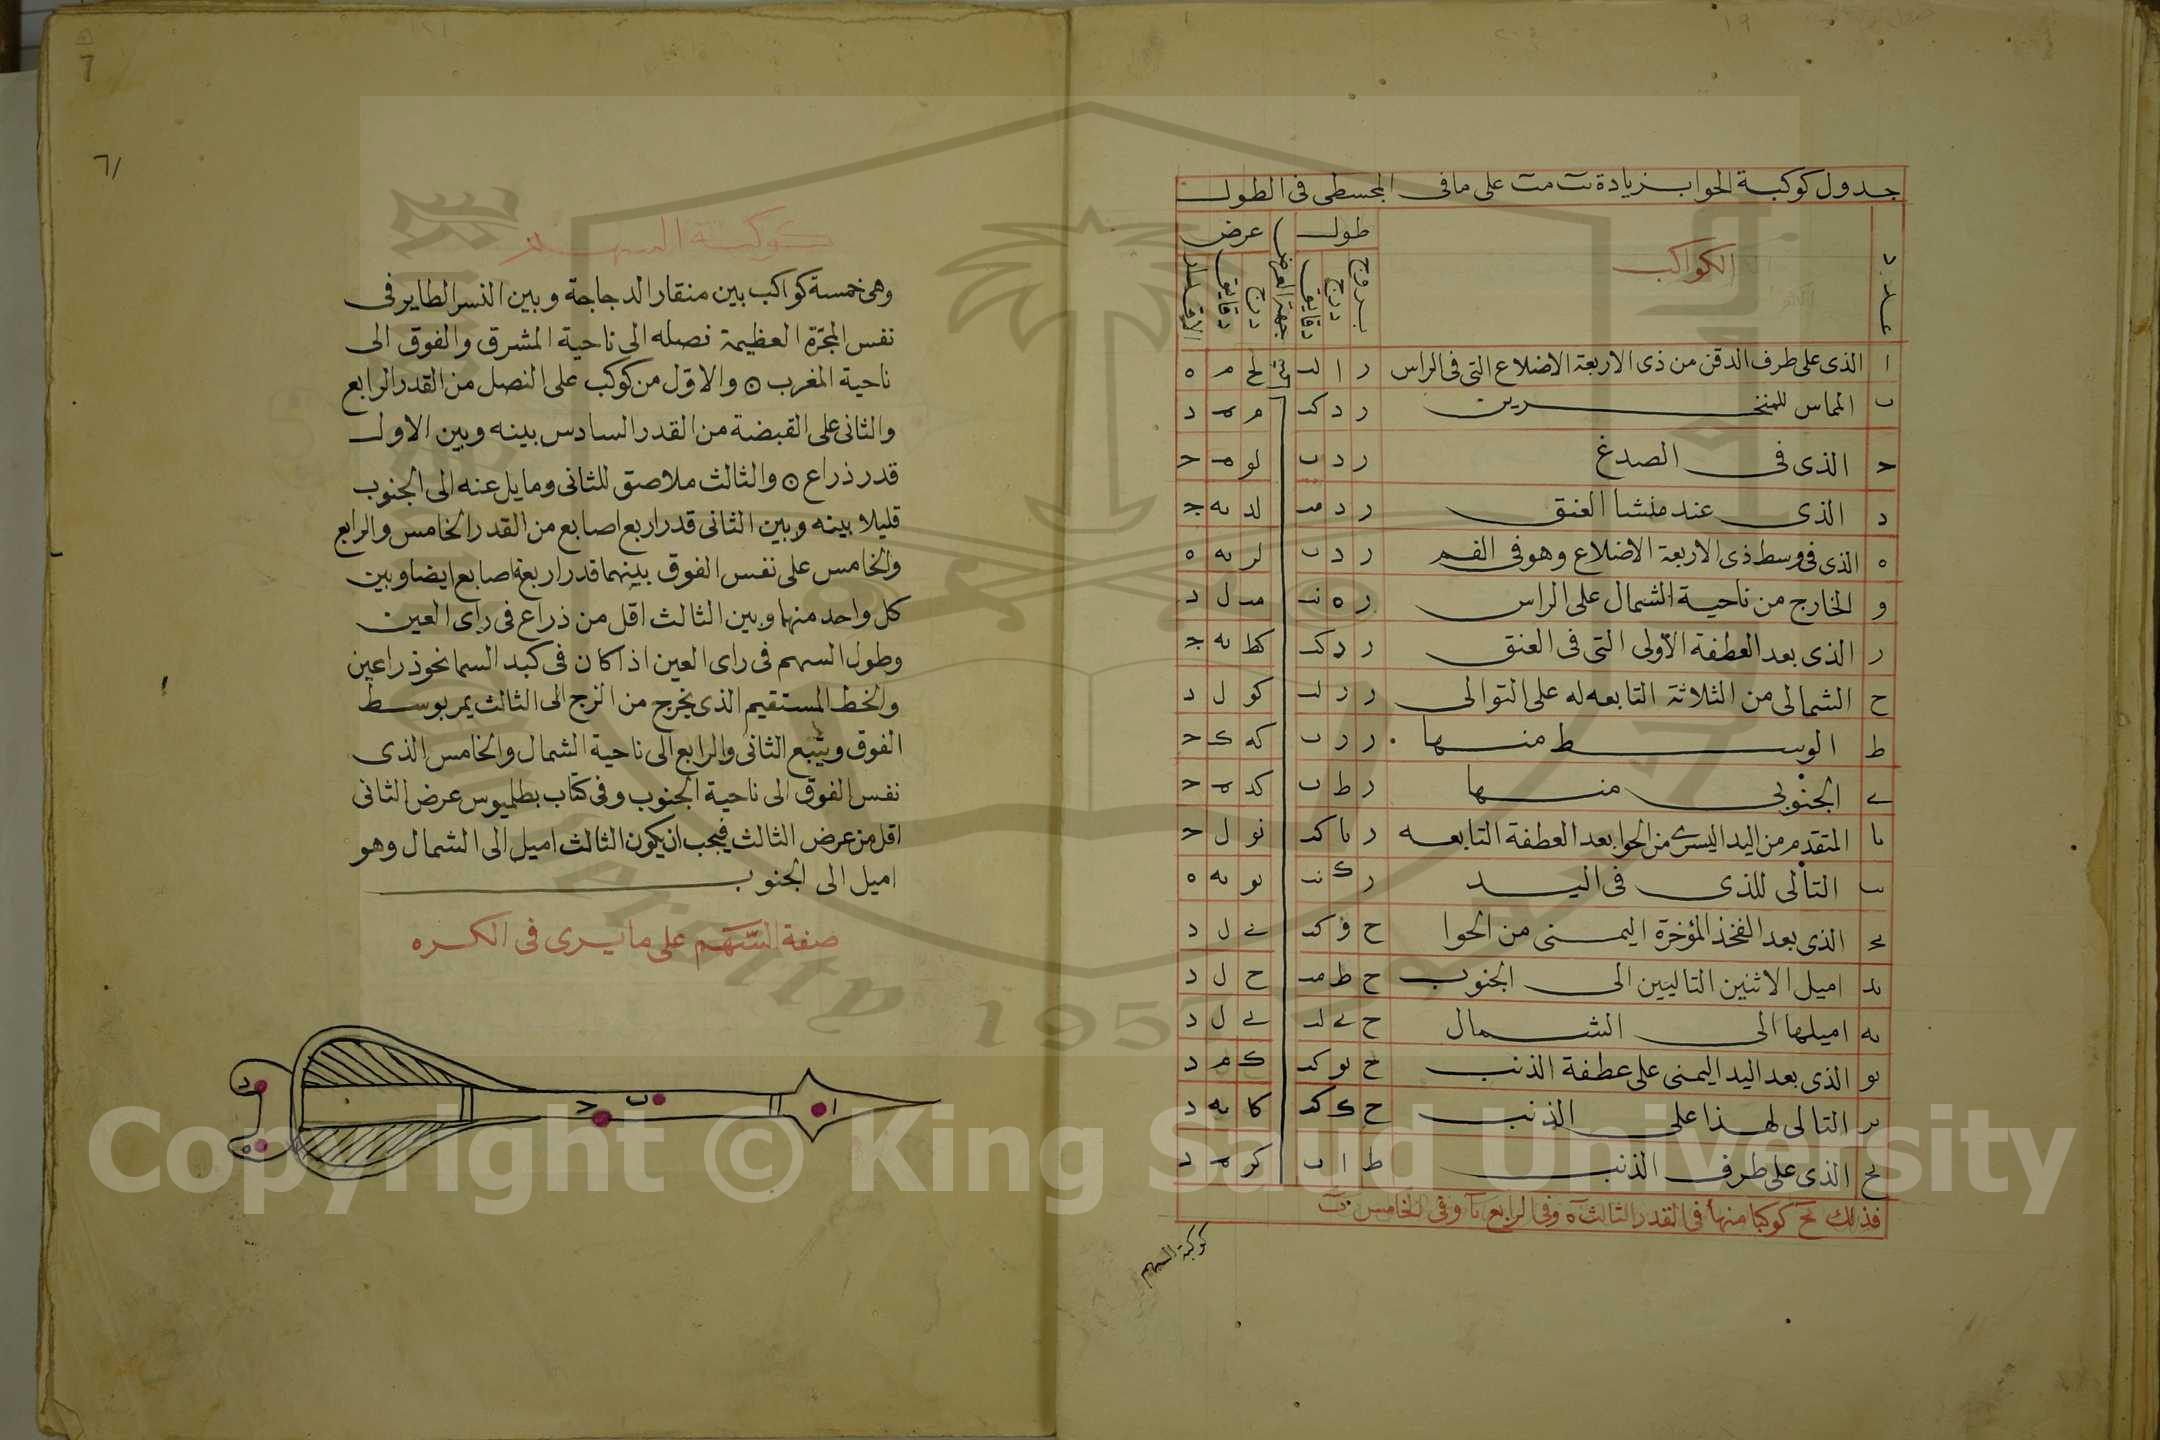 جدول كوكبة الحوا بزيادة ىب مب على ما فى المجسطى فى الطول
عدد
الكواكب
طول
جهة العرض
عرض
الاقدار
بروج
درج
دقايق
درج
دقايق
ا الذى على طرف الدقن من ذى الاربعة الاضلاع التى فى الراس ر ا لد لح م ه
ب المماس للمنخرين ر د كد م مه د
ح الذى فى الصدغ ر د ب لو مه ح
د الذى عند منشا العنق ر د مد لد يه ح
ه الذى فى وسط ذى الاربعة الاضلاع وهو فى الفم ر د ب لر يه ه
و الخارج من ناحية الشمال على الراس ر ه ند مب ل د
ر الذى بعد العطفة الاولى التى فى العنق ر د كد كط يه ح
ح الشمالى من الثلاثة التابعه له على التوالى ر ر لد كو ل د
ط الوسط منها ر ر ب كه ك ح
ى الجنوبى منها ر ط ب كد مه ح
يا المتقدم من اليد اليسرى من الحوا بعد العطفة التابعه ر يا كد نو ل ح
يب التالى للذى فى اليد ر ك ند يو يه ه
يح الذى بعد الفخذ المؤخرة اليمنى من الحوا ح و كد ى ل د
يد اميل الاثنين التاليين الى الجنوب ح ط مد ح ل د
يه اميلها الى الشمال ح ى لد ى ل د
يو الذى بعد اليد اليمنى على عطفة الذنب ح يو كد ك م د
ير التالى لهذا على الذنب ح ك كد كا يه د
يح الذى على طرف الذنب ط ا ب كر مه د
فذلك يح كوكبا منها فى القدر الثالث ه وفى الرابع يا وفى الخامس ب
كوكبة السهم
7
61
كوكبة السهم
وهى خمسة كواكب بين منقار الدجاجة وبين النسر الطاير فى
نفس المجرّة العظيمة نصله الى ناحية المشرق والفوق الى
ناحية المغرب ⊙ والاوّل من كوكب على النصل من القدر الرابع
والثانى على القبضة من القدر السادس بينه وبين الاول
قدر ذراع ⊙ والثالث ملاصق للثانى ومايل عنه الى الجنوب
قليلا بينه وبين الثانى قدر اربع اصابع من القدر الخامس والرابع
والخامس على نفس الفوق بينهما قدر اربعة اصابع ايضا وبين
كل واحد منها وبين الثالث اقل من ذراع فى راى العين
وطول السهم فى راى العين اذا كان فى كبد السما نحو ذراعين
والخط المستقيم الذى يخرج من الزج الى الثالث يمر بوسط
الفوق ويتبع الثانى والرابع الى ناحية الشمال والخامس الذى
نفس الفوق الى ناحية الجنوب وفى كتاب بطلميوس عرض الثانى
اقل من عرض الثالث فيجب ان يكون الثالث اميل الى الشمال وهو
اميل الى الجنوب
صفة السّهم على ما يرى فى الكره
د
ه
ح
ب
ا
Copyright © King Saud University
1957